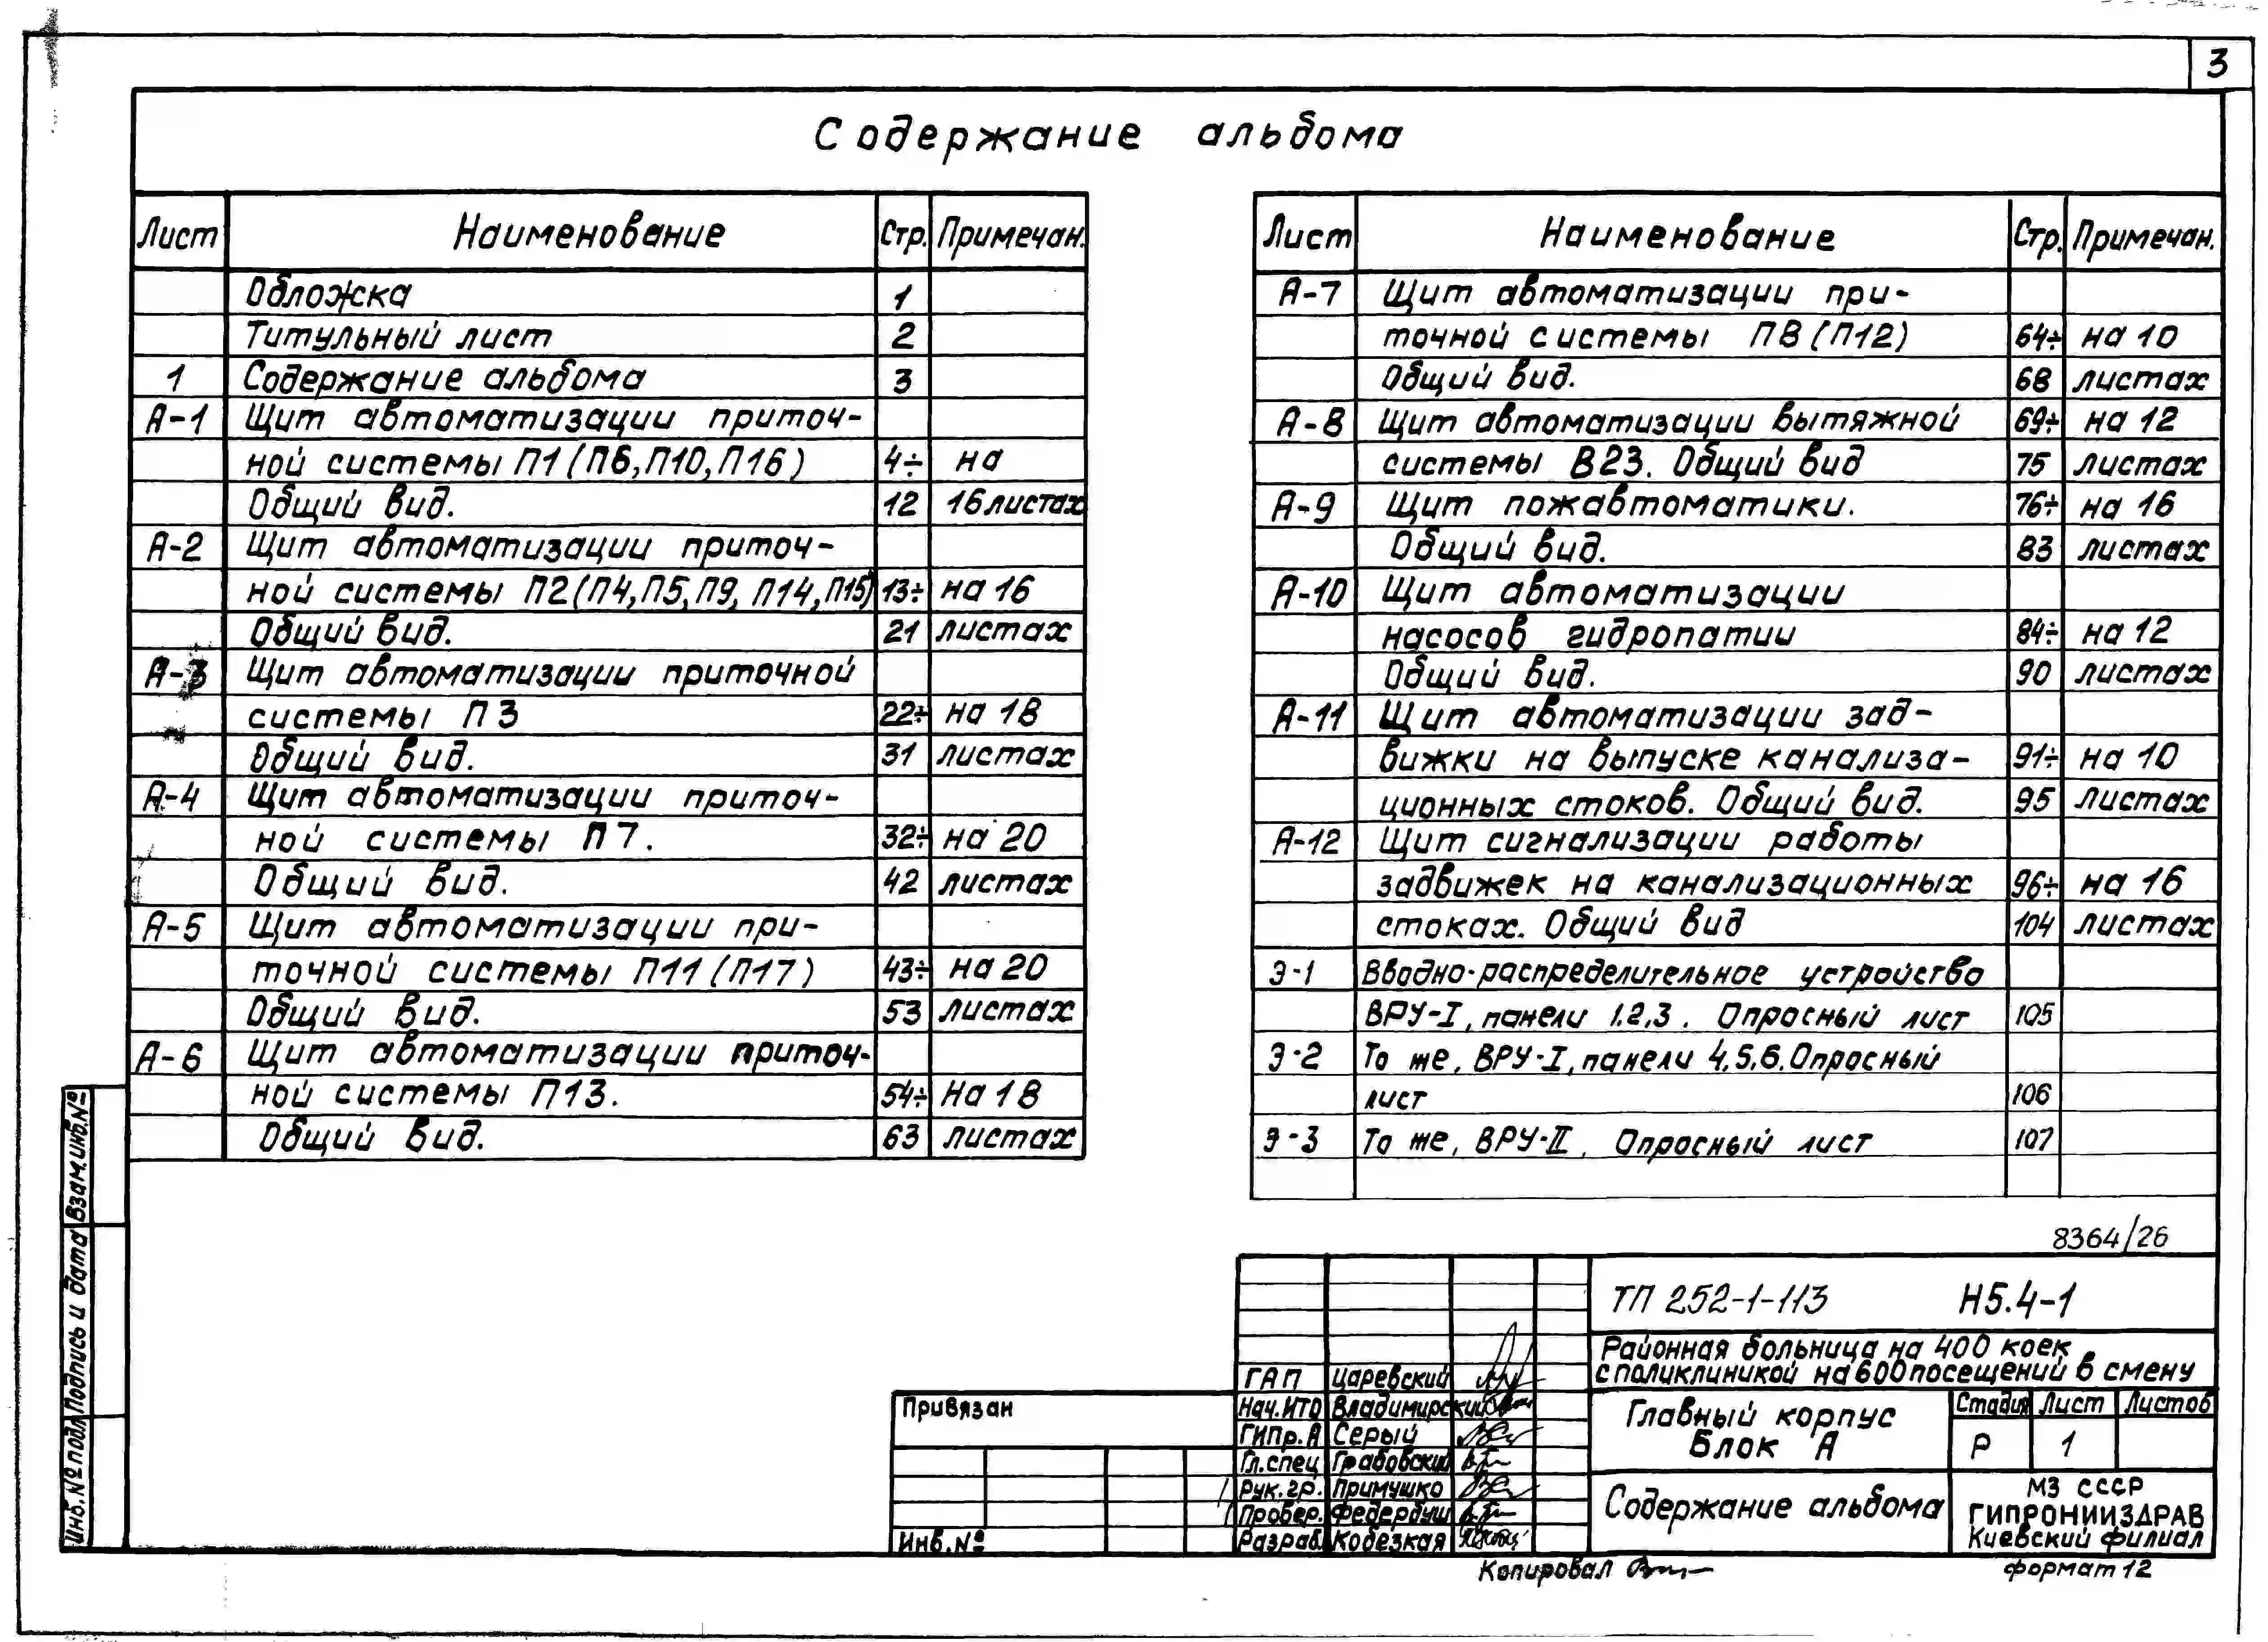 3
Содержание альбома
Лист Наименование Стр. Примечан.
Обложка 1
Титульный лист 2
1 Содержание альбома 3
А-1 Щит автоматизации приточ-
ной системы П1 (П6, П10, П16) 4÷ на
Общий вид. 12 16 листах
А-2 Щит автоматизации приточ-
ной системы П2 (П4, П5, П9, П14, П15) 13÷ на 16
Общий вид. 21 листах
А-3 Щит автоматизации приточной
системы П3 22÷ на 18
Общий вид. 31 листах
А-4 Щит автоматизации приточ-
ной системы П7. 32÷ на 20
Общий вид. 42 листах
А-5 Щит автоматизации при-
точной системы П11 (П17) 43÷ на 20
Общий вид. 53 листах
А-6 Щит автоматизации приточ-
ной системы П13. 54÷ На 18
Общий вид. 63 листах
Лист Наименование Стр. Примечан.
А-7 Щит автоматизации при-
точной системы П8 (П12) 64÷ на 10
Общий вид. 68 листах
А-8 Щит автоматизации вытяжной 69÷ на 12
системы В23. Общий вид 75 листах
А-9 Щит пожавтоматики. 76÷ на 16
Общий вид. 83 листах
А-10 Щит автоматизации
насосов гидропатии 84÷ на 12
Общий вид. 90 листах
А-11 Щит автоматизации зад-
вижки на выпуске канализа- 91÷ на 10
ционных стоков. Общий вид. 95 листах
А-12 Щит сигнализации работы
задвижек на канализационных 96÷ на 16
стоках. Общий вид 104 листах
Э-1 Вводно-распределительное устройство
ВРУ-I, панели 1.2,3. Опросный лист 105
Э-2 То же, ВРУ-I, панели 4,5,6. Опросный
лист 106
Э-3 То же, ВРУ-II, Опросный лист 107
8364/26
ТП 252-1-113 Н5.4-1
Районная больница на 400 коек
с поликлиникой на 600 посещений в смену
Главный корпус
Блок А
Стадия Лист Листов
Р 1
Содержание альбома
МЗ СССР
ГИПРОНИИЗДРАВ
Киевский филиал
ГАП Царевский
Нач.ИТО Владимирский
ГИПр.А Серый
Гл.спец Грабовский
Рук.гр. Примушко
Провер. Федербуш
Разраб. Кобезкая
Привязан
Инв.№
Копировал
формат 12
Взам.инв.№
Подпись и дата
Инв.№ подл